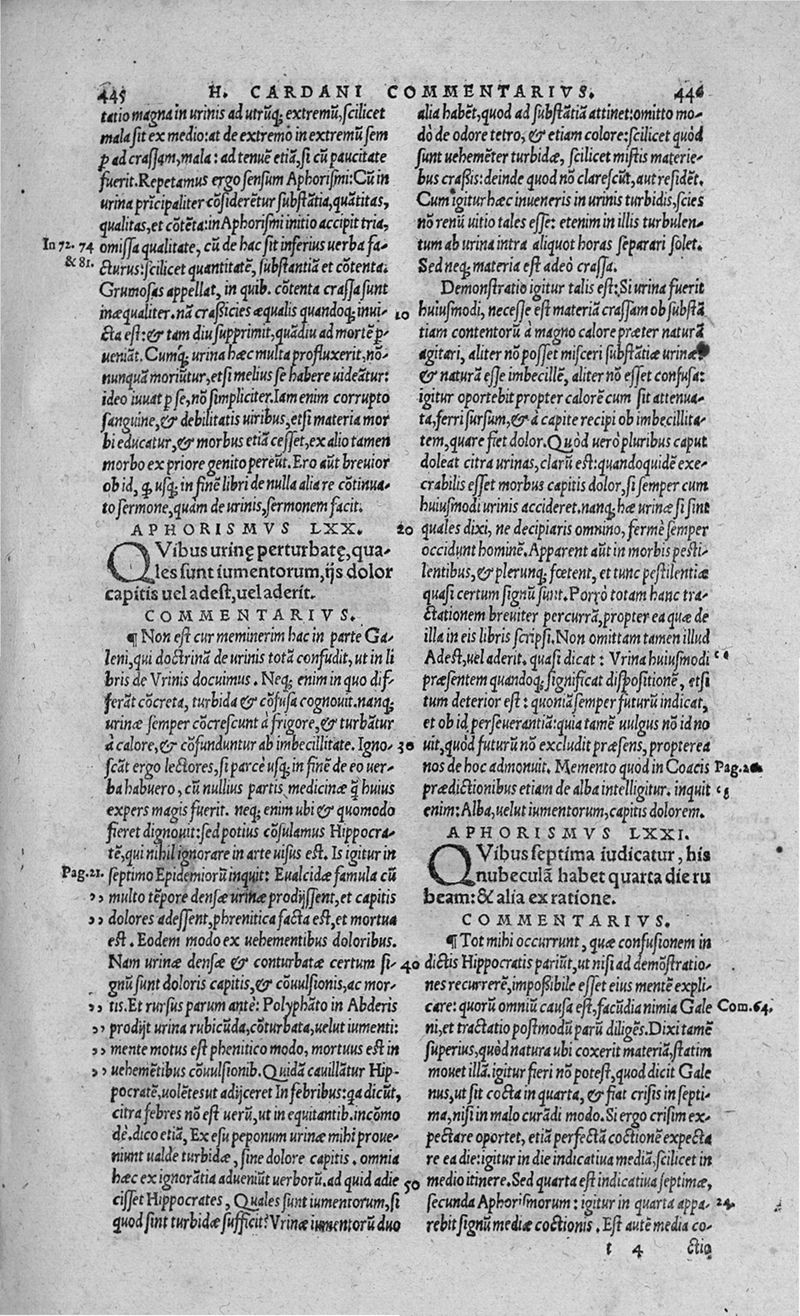 445 H. CARDANI COMMENTARIVS. 446
tatio magna in urinis ad utrũq; extremũ, ſcilicet
mala ſit ex medio: at de extremo in extremũ ſem
ꝑ ad craſſam, mala: ad tenuẽ etiã, ſi cũ paucitate
fuerit. Repetamus ergo ſenſum Aphoriſmi: Cũ in
urina prĩcipaliter cõſideretur ſubſtãtia, quãtitas,
qualitas, et cõtẽta: in Aphoriſmi initio accipit tria,
In 72. 74 omiſſa qualitate, cũ de hac ſit inferius uerba fa-
& 81. cturus: ſcilicet quantitatẽ, ſubſtantiã et cõtenta.
Grumoſas appellat, in quib. cõtenta craſſa sunt
inæqualiter. nã craſſicies æqualis quandoq; inui-
cta eſt: & tam diu ſupprimit, quãdiu ad mortẽ ꝑ-
ueniãt. Cumq; urina hæc multa profluxerit, nõ-
nunquã moriũtur, etſi melius ſe habere uideãtur:
ideo iuuat ꝑ ſe, nõ ſimpliciter. Iam enim corrupto
ſanguine, & debilitatis uiribus, etſi materia mor
bi educatur, & morbus etiã ceſſet, ex alio tamen
morbo ex priore genito pereũt. Ero aũt breuior
ob id, ꝙ uſq; in finẽ libri de nulla alia re cõtinua-
to ſermone, quàm de urinis, ſermonem facit.
APHORISMVS LXX.
QVibus urinę perturbatę, qua-
les ſunt iumentorum, ijs dolor
capitis uel adeſt, uel aderit.
COMMENTARIVS.
¶ Non eſt cur meminerim hac in parte Ga-
leni, qui doctrinã de urinis totã confudit, ut in li
bris de Vrinis docuimus. Neq; enim in quo dif-
ferãt cõcreta, turbida & cõfuſa cognouit. nanq;
urinæ ſemper cõcreſcunt à frigore, & turbãtur
à calore, & cõfunduntur ab imbecillitate. Igno-
ſcãt ergo lectores, ſi parcè uſq; in finẽ de eo uer-
ba habuero, cũ nullius partis medicinæ ꝗ̃ huius
expers magis fuerit. neq; enim ubi & quomodo
fieret dignouit: ſed potius cõſulamus Hippocra-
tẽ, qui nihil ignorare in arte uiſus eſt. Is igitur in
Pag. 21. ſeptimo Epidemiorũ inquit: Eualcidæ famula cũ
,, multo tẽpore denſæ urinæ prodijſſent, et capitis
,, dolores adeſſent, phrenitica facta eſt, et mortua
eſt. Eodem modo ex uehementibus doloribus.
Nam urinæ denſæ & conturbatæ certum ſi-
gnũ ſunt doloris capitis, & cõuulſionis, ac mor-
,, tis. Et rurſus parum antè: Polyphãto in Abderis
,, prodijt urina rubicũda, cõturbata, uelut iumenti:
,, mente motus eſt phenitico modo, mortuus eſt in
,, uehemẽtibus cõuulſionib. Quidã cauillãtur Hip-
pocratẽ, uolẽtes ut adijceret In febribus: qa dicũt,
citra febres nõ eſt uerũ, ut in equitantib. incõmo
dè. dico etiã, Ex eſu peponum urinæ mihi proue-
niunt ualde turbidæ, ſine dolore capitis. omnia
hæc ex ignorãtia adueniũt uerborũ. ad quid adie
ciſſet Hippocrates, Quales ſunt iumentorum, ſi
quod ſint turbidæ ſufficit? Vrinæ iumentorũ duo
alia habẽt, quod ad ſubſtãtiã attinet: omitto mo-
dò de odore tetro, & etiam colore: ſcilicet quòd
ſunt uehemẽter turbidæ, ſcilicet miſtis materie-
bus craßis: deinde quod nõ clareſcũt, aut reſidẽt.
Cum igitur hæc inueneris in urinis turbidis, ſcies
nõ renũ uitio tales eſſe: etenim in illis turbulen-
tum ab urina intra aliquot horas ſeparari ſolet.
Sed neq; materia eſt adeò craſſa.
Demonſtratio igitur talis eſt: Si urina fuerit
10 huiuſmodi, neceſſe eſt materiã craſſam ob ſubſtã
tiam contentorũ à magno calore præter naturã
agitari, aliter nõ poſſet miſceri ſubſtãtiæ urinæ
& naturã eſſe imbecillẽ, aliter nõ eſſet confuſa:
igitur oportebit propter calorẽ cum ſit attenua-
ta, ferri ſurſum, & à capite recipi ob imbecillita-
tem, quare fiet dolor. Quòd uerò pluribus caput
doleat citra urinas, clarũ eſt: quandoquidẽ exe-
crabilis eſſet morbus capitis dolor, ſi ſemper cum
huiuſmodi urinis accideret. nanq; hæ urinæ ſi ſint
20 quales dixi, ne decipiaris omnino, fermè ſemper
occidunt hominẽ. Apparent aũt in morbis peſti-
lentibus, & plerunq; fœtent, et tunc peſtilentiæ
quaſi certum ſignũ ſunt. Porrò totam hanc tra-
ctationem breuiter percurrã, propter ea quæ de
illa in eis libris ſcripſi. Non omittam tamen illud
Adeſt, uel aderit. quaſi dicat: Vrina huiuſmodi ‘‘
præſentem quandoq; ſignificat diſpoſitionẽ, etſi
tum deterior eſt: quoniã ſemper futurũ indicat,
et ob id perſeuerantiã: quia tamẽ uulgus nõ id no
30 uit, quòd futurũ nõ excludit præſens, propterea
nos de hoc admonuit. Memento quod in Coacis Pag.
prædictionibus etiam de alba intelligitur. inquit
enim: Alba, uelut iumentorum, capitis dolorem.
APHORISMVS LXXI.
QVibus ſeptima iudicatur, his
nubeculã habet quarta die ru
beam: & alia ex ratione.
COMMENTARIVS.
¶ Tot mihi occurrunt, quæ confuſionem in
40 dictis Hippocratis pariũt, ut niſi ad demõſtratio-
nes recurrerẽ, impoßibile eſſet eius mentẽ expli-
care: quorũ omniũ cauſa eſt, facũdia nimia Gale Com. 64.
ni, et tractatio poſtmodũ parũ diligẽs. Dixi tamẽ
ſuperius, quòd natura ubi coxerit materiã, ſtatim
mouet illã. igitur fieri nõ poteſt, quod dicit Gale
nus, ut ſit cocta in quarta, & fiat criſis in ſepti-
ma, niſi in malo curãdi modo. Si ergo criſim ex-
pectare oportet, etiã perfectã coctionẽ expecta
re ea die: igitur in die indicatiua mediã, ſcilicet in
50 medio itinere. Sed quarta eſt indicatiua ſeptimæ,
ſecunda Aphoriſmorum: igitur in quarta appa- 24.
rebit ſignũ mediæ coctionis. Eſt autẽ media co-
t 4 ctio